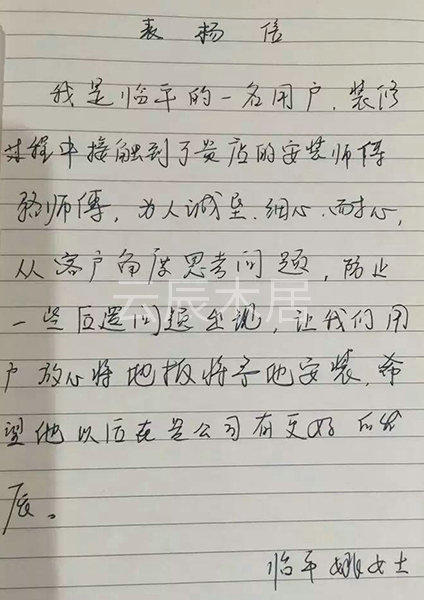 表扬信
我是临平的一名用户,装修
过程中接触到了贵店的安装师傅
骆师傅,为人诚垦、细心、耐心,
从客户角度思考问题,防止
一些后遗问题出现,让我们用
户放心将地板将予地安装,希
望他以后在贵公司有更好的发
展。
临平 姚女士
云辰木居